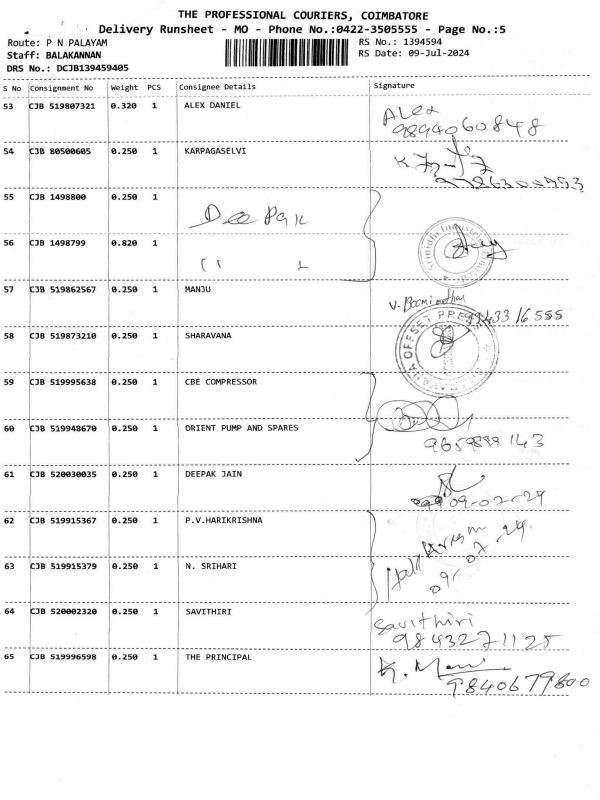 THE PROFESSIONAL COURIERS, COIMBATORE
Delivery Runsheet - MO - Phone No.:0422-3505555 - Page No.:5
Route: P N PALAYAM RS No.: 1394594
Staff: BALAKANNAN RS Date: 09-Jul-2024
DRS No.: DCJB139459405
S No Consignment No Weight PCS Consignee Details Signature
53 CJB 519807321 0.320 1 ALEX DANIEL Alex
9894060848
54 CJB 80500605 0.250 1 KARPAGASELVI
55 CJB 1498800 0.250 1 Deepak
56 CJB 1498799 0.820 1
57 CJB 519862567 0.250 1 MANJU
58 CJB 519873210 0.250 1 SHARAVANA
OFFSET
59 CJB 519995638 0.250 1 CBE COMPRESSOR
60 CJB 519948670 0.250 1 ORIENT PUMP AND SPARES
61 CJB 520030035 0.250 1 DEEPAK JAIN
09-07-24
62 CJB 519915367 0.250 1 P.V.HARIKRISHNA
09-07-24
63 CJB 519915379 0.250 1 N. SRIHARI
64 CJB 520002320 0.250 1 SAVITHIRI Savithiri
9843271125
65 CJB 519996598 0.250 1 THE PRINCIPAL
9840679800